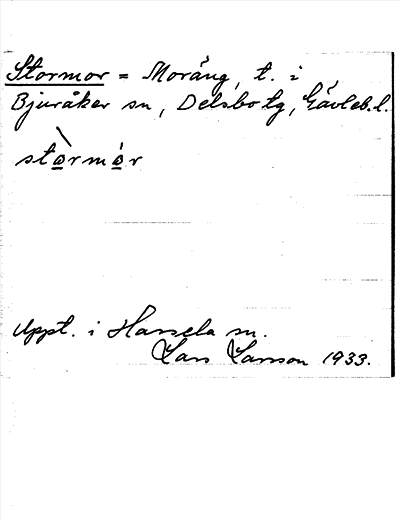 Stormor = Moräng, t. i
Bjuråker sn, Delsbo tg, Gävleb.l.
stòrmór
Uppt. i Hassela sn.
Lars Larsson 1933.